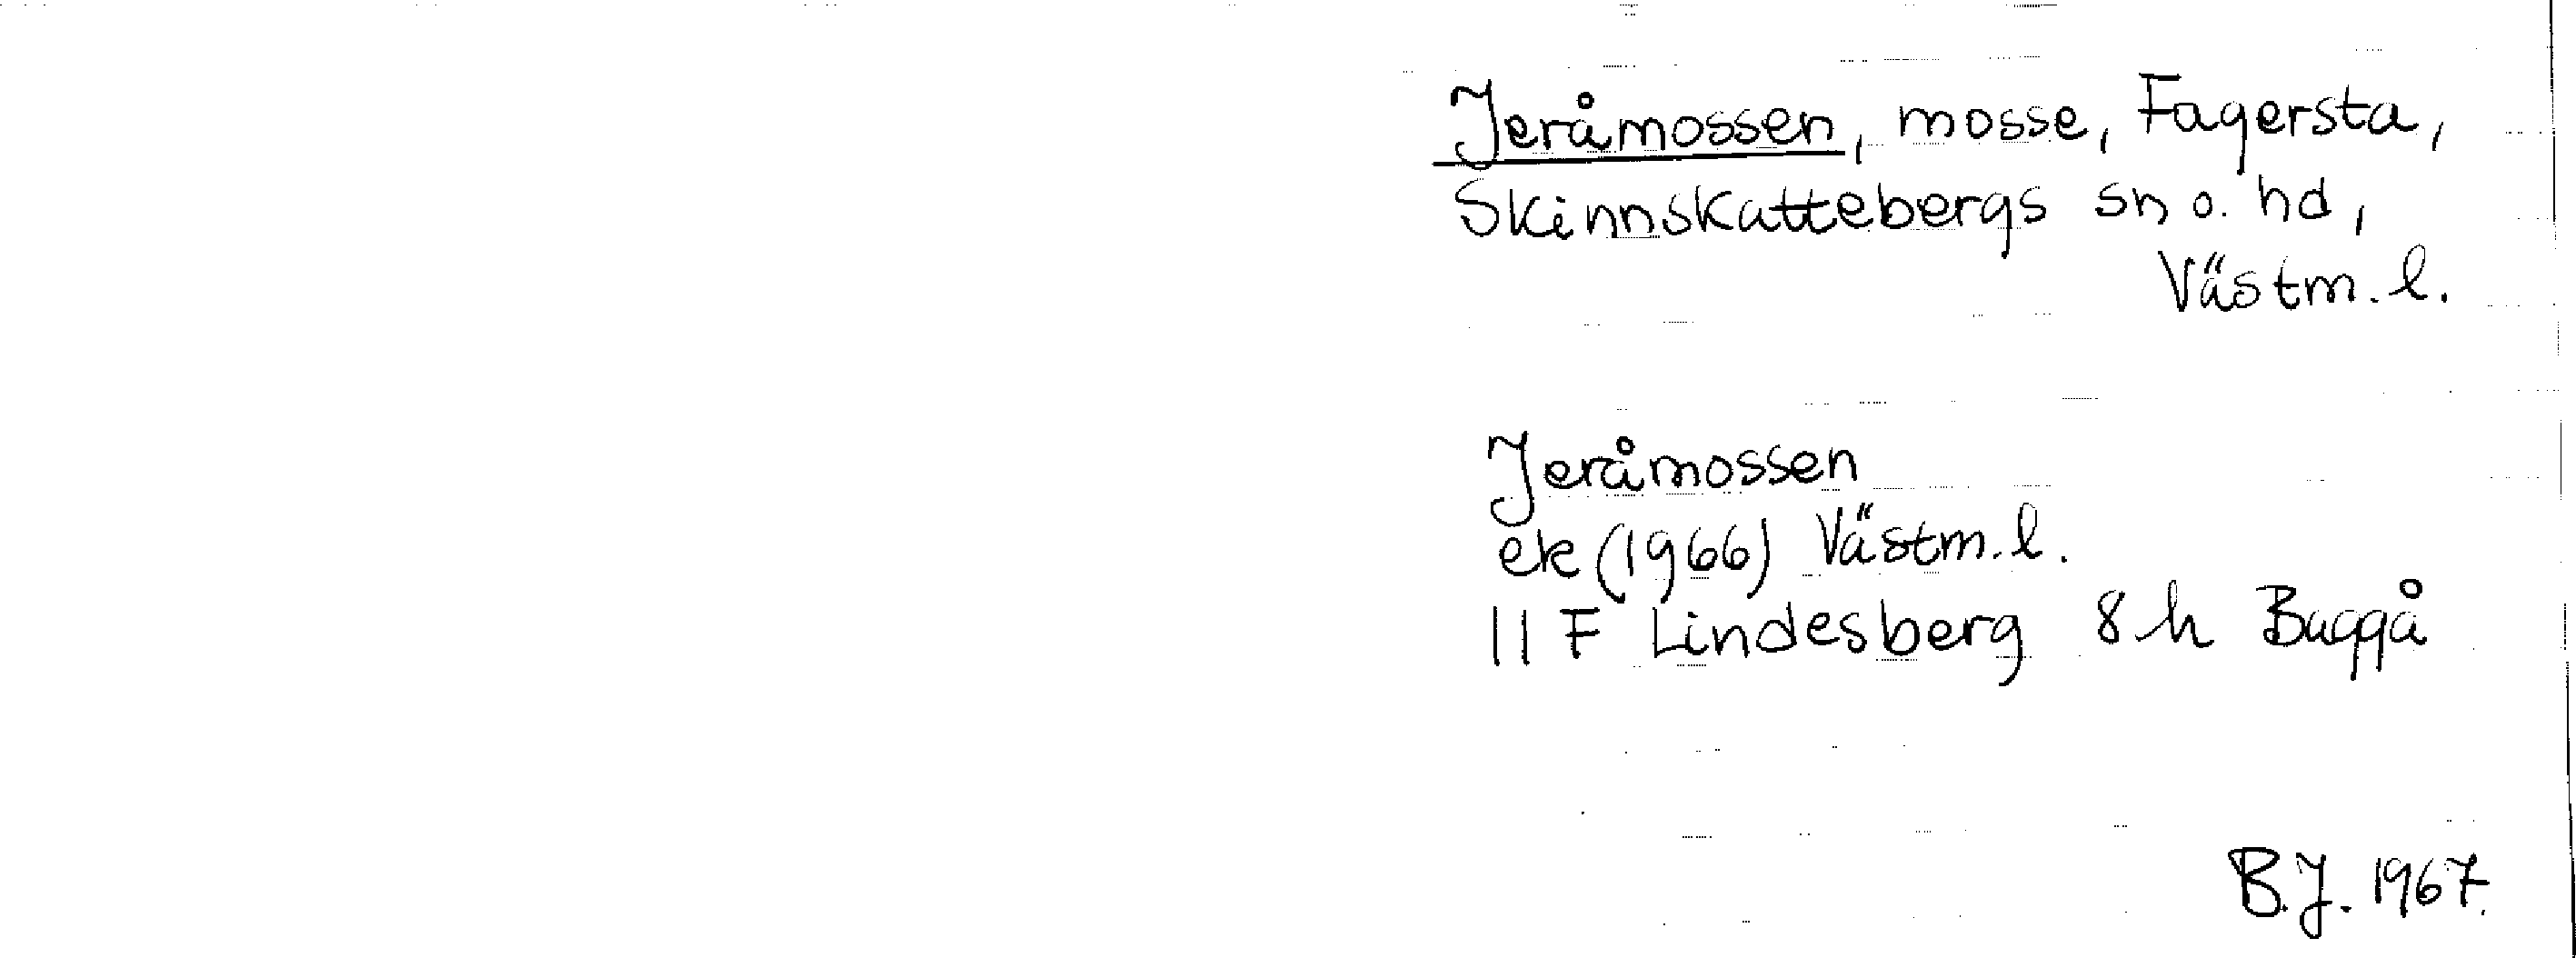 Jeråmossen, mosse, Fagersta,
Skinnskattebergs sn o. hd,
Västm. l.
Jeråmossen
ek (1966) Västm. l.
11 F Lindesberg 8 h Baggå
B.J. 1967.